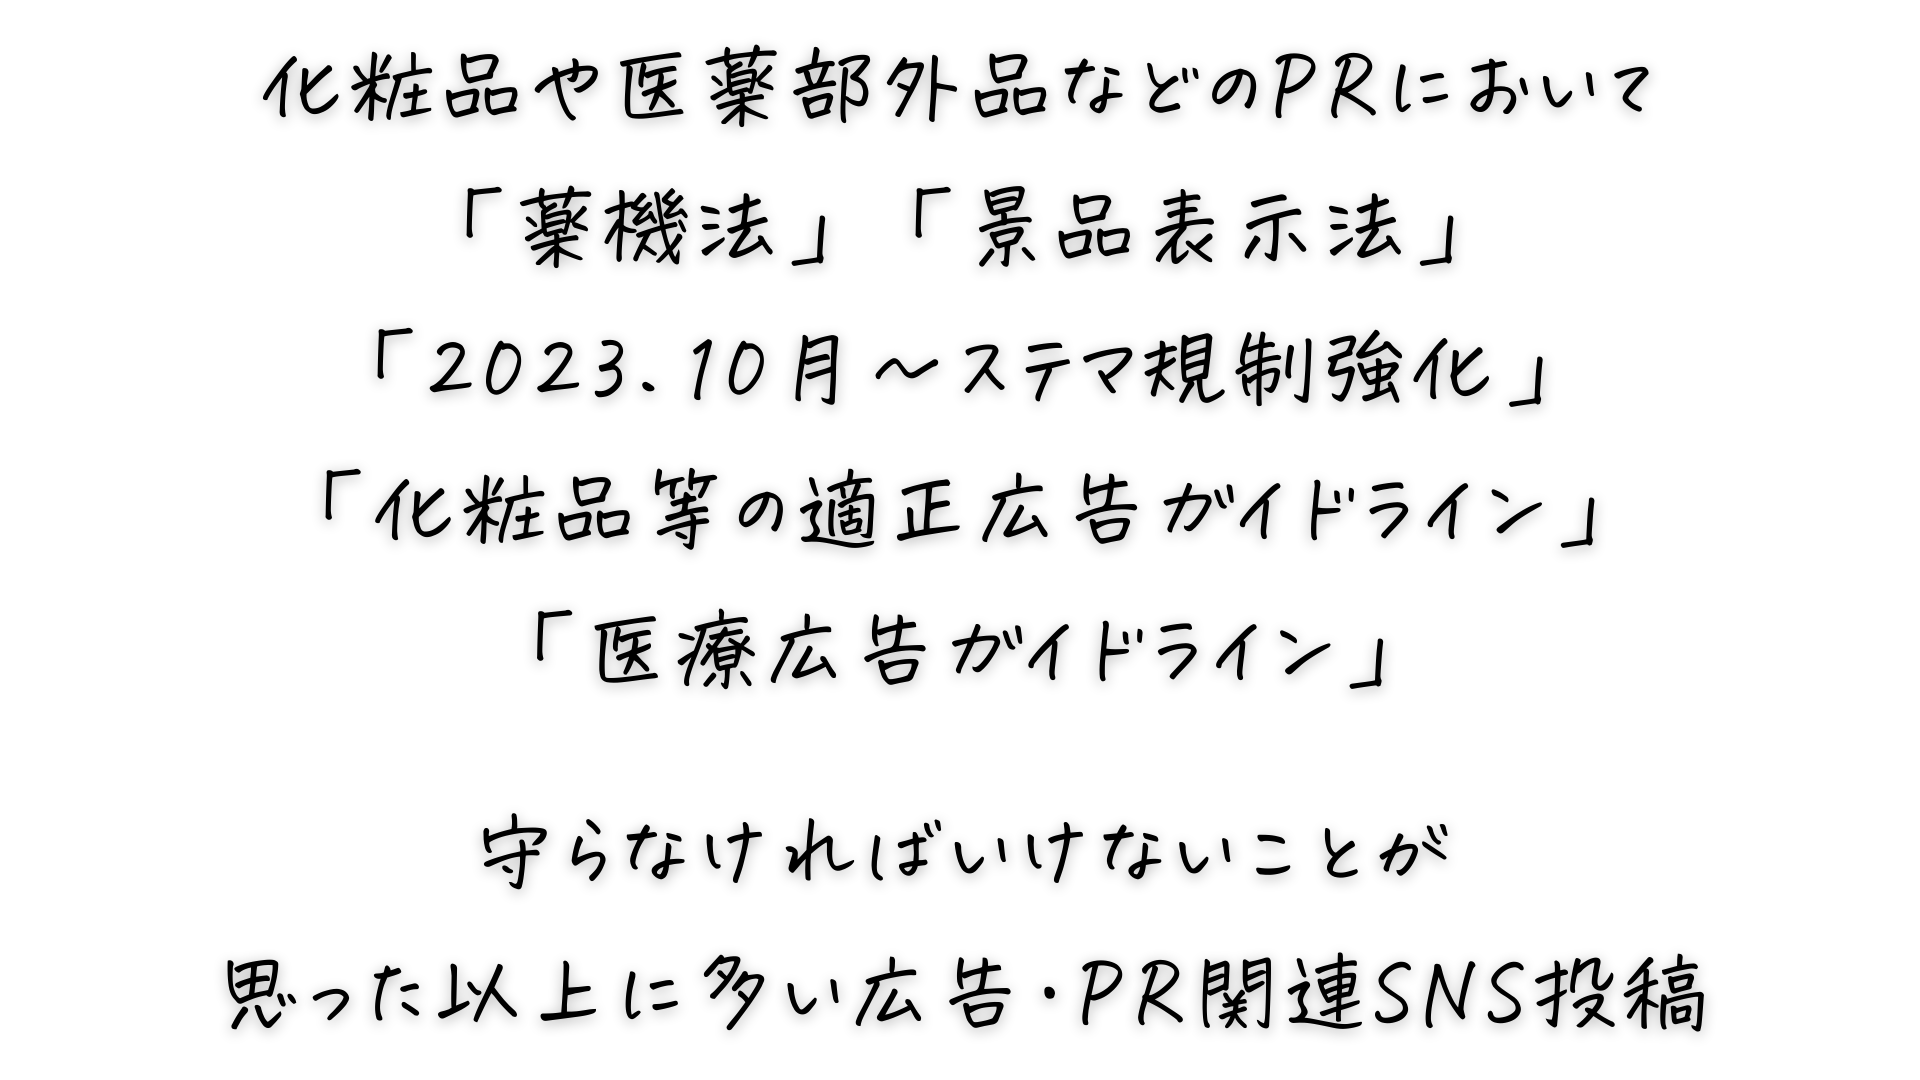 化粧品や医薬部外品などのPRにおいて
「薬機法」「景品表示法」
「2023.10月～ステマ規制強化」
「化粧品等の適正広告ガイドライン」
「医療広告ガイドライン」
守らなければいけないことが
思った以上に多い広告・PR関連SNS投稿